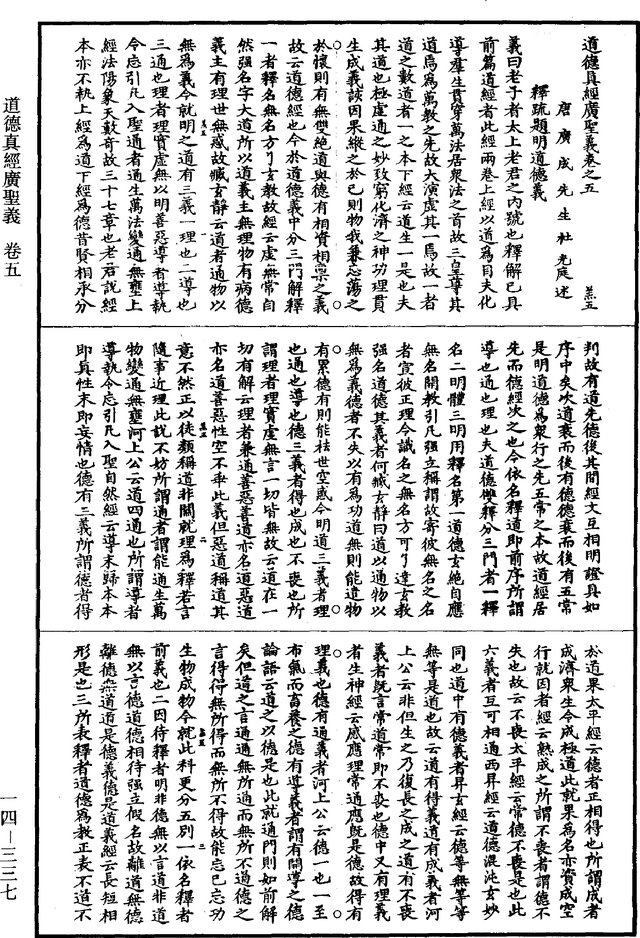 道德真經廣聖義卷之五
唐廣成先生杜光庭述
釋疏題明道德義
義曰老子者太上老君之內號也釋解已具
前篇道經者此經兩卷上經以道為目夫化
導羣生貫穿萬法居衆法之首故三皇尊其
道焉為萬教之先故大演虛其一焉故一者
道之數道者一之本下經云道生一是也夫
其道也極虛通之妙致窮化濟之神功理貫
生成義該因果縱之於已則物我兼忘蕩之
於懷則有無雙絕道與德有相資相稟之義
故云道德經也今於道德義中分三門解釋
一者釋名無名方了玄教故經云虛無常自
然強名字大道所以道義主無理物有病德
義主有理世無惑故臧玄靜云道者通物以
無為義今就明之道有三義一理也二導也
三通也理者理實虛無以明善惡導者導執
令忘引凡入聖通者通生萬法變通無壅上
經法陽象天數奇故三十七章也老君說經
本亦不執上經為道下經為德昔賢相承分
判故有道先德後其間經文互相明證具如
序中矣次道衰而後有德德衰而後有五常
是明道德為衆行之先五常之本故道經居
先而德經次之也今依名釋道即前序所謂
導也通也理也夫道德雙釋分三門者一釋
名二明體三明用釋名第一道德玄絕自應
無名開教引凡強立稱謂故寄彼無名之名
者宣彼正理令識名之無名方可了達玄教
強名道德其義者何臧玄靜曰道以通物以
無為義德者不失以有為功道無則能遣物
有累德有則能祛世空惑今明道三義者理
也通也導也德三義者得也成也不喪也所
謂理者理實虛無言一切皆無故云道在一
切有解云理者兼通善惡善道亦名道惡道
亦名道善惡性空不乖此義但惡道稱道其
意不然正以徒類稱道非關就理為釋若言
隨事近理此說不妨所謂通者謂能通生萬
物變通無壅河上公云道四通也所謂導者
導執令忘引凡入聖自然經云導末歸本本
即真性末即妄情也德有三義所謂德者得
於道果太平經云德者正相得也所謂成者
成濟衆生令成極道此就果為名亦資成空
行就因者經云熟成之所謂不喪者謂德不
失也故云不喪太平經云常德不喪是也此
六義者互可相通西昇經云道德混沌玄妙
同也道中有德義者昇玄經云德等無等等
無等是道也故云道有得義道有成義者河
上公云非但生之乃復長之成之道有不喪
義者既言常道常即不喪也德中又有理義
者生神經云感應理常通應既是德故得有
理義也德有通義者河上公云德一也一至
布氣而畜養之德有導義者謂有開導之德
論語云道之以德是也此就通門則如前解
矣但道之言通通無所通而無所不通德之
言得得無所得而無所不得故能忘已忘功
生物成物今就此科更分五別一依名釋者
前義也二因待釋者明非德無以言道非道
無以言德道德相待強立假名故離道無德
離德無道道是德義德是道義經云長短相
形是也三所表釋者道德為教正表不道不
道德真經廣聖義 卷五
一四—三三七